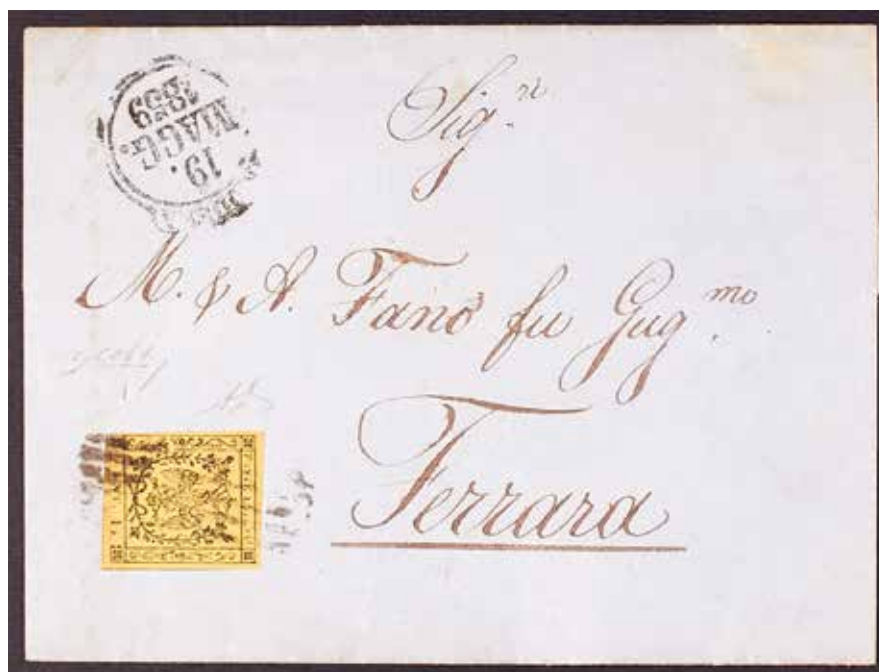 19.
MAGG.
1859
Sig.ri
M. & A. Fano fu Gug.mo
Ferrara